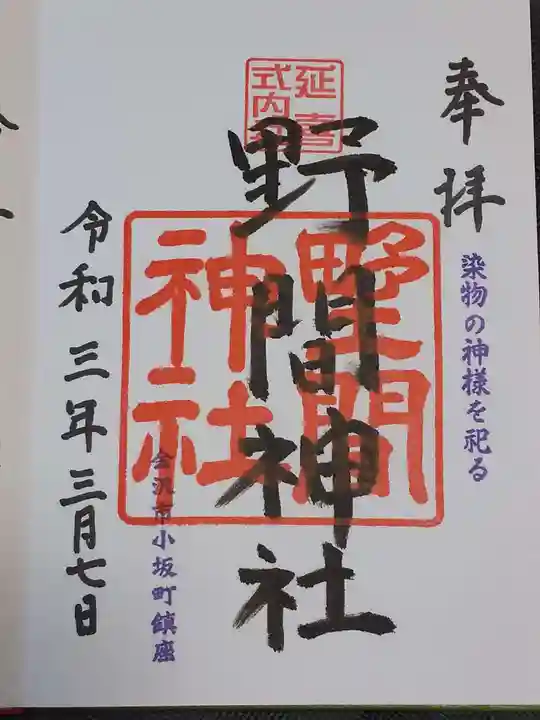 奉拝
染物の神様を祀る
延喜
式内社
野間神社
野間
神社
金沢市小坂町鎮座
令和三年三月七日